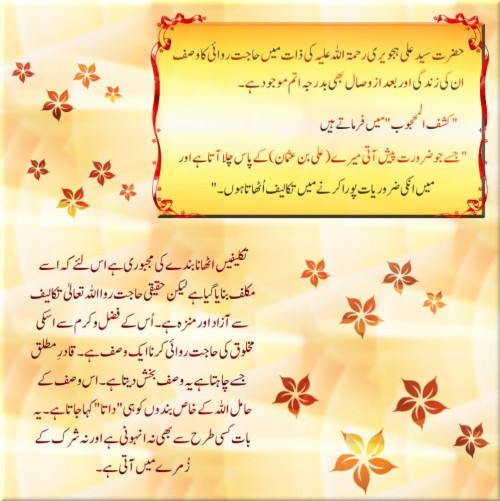 حضرت سید علی ہجویری رحمۃ اللہ علیہ کی ذات میں حاجت روائی کا وصف
ان کی زندگی اور بعد از وصال بھی بدرجہ اتم موجود ہے۔
"کشف المحجوب" میں فرماتے ہیں
"جسے جو ضرورت پیش آتی میرے (علی بن عثمان) کے پاس چلا آتا ہے اور
میں انکی ضروریات پورا کرنے میں تکالیف اُٹھاتا ہوں۔"
تکلیفیں اٹھانا بندے کی مجبوری ہے اس لئے کہ اسے
مکلف بنایا گیا ہے لیکن حقیقی حاجت روا اللہ تعالیٰ تکالیف
سے آزاد اور منزہ ہے۔ اُس کے فضل و کرم سے اسکی
مخلوق کی حاجت روائی کرنا ایک وصف ہے۔ قادرِ مطلق
جسے چاہتا ہے یہ وصف بخش دیتا ہے۔ اس وصف کے
حامل اللہ کے خاص بندوں کو ہی "داتا" کہا جاتا ہے۔ یہ
بات کسی طرح سے بھی نہ انہونی ہے اور نہ شرک کے
زُمرے میں آتی ہے۔